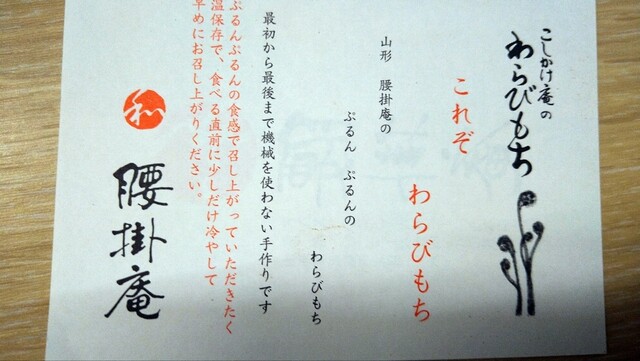 こしかけ庵の
わらびもち
これぞ
わらびもち
山形 腰掛庵の
ぷるん ぷるんの
わらびもち
最初から最後まで機械を使わない手作りです
ぷるんぷるんの食感で召し上がっていただきたく
温保存で、食べる直前に少しだけ冷やして
早めにお召し上がりください。
和
腰掛庵